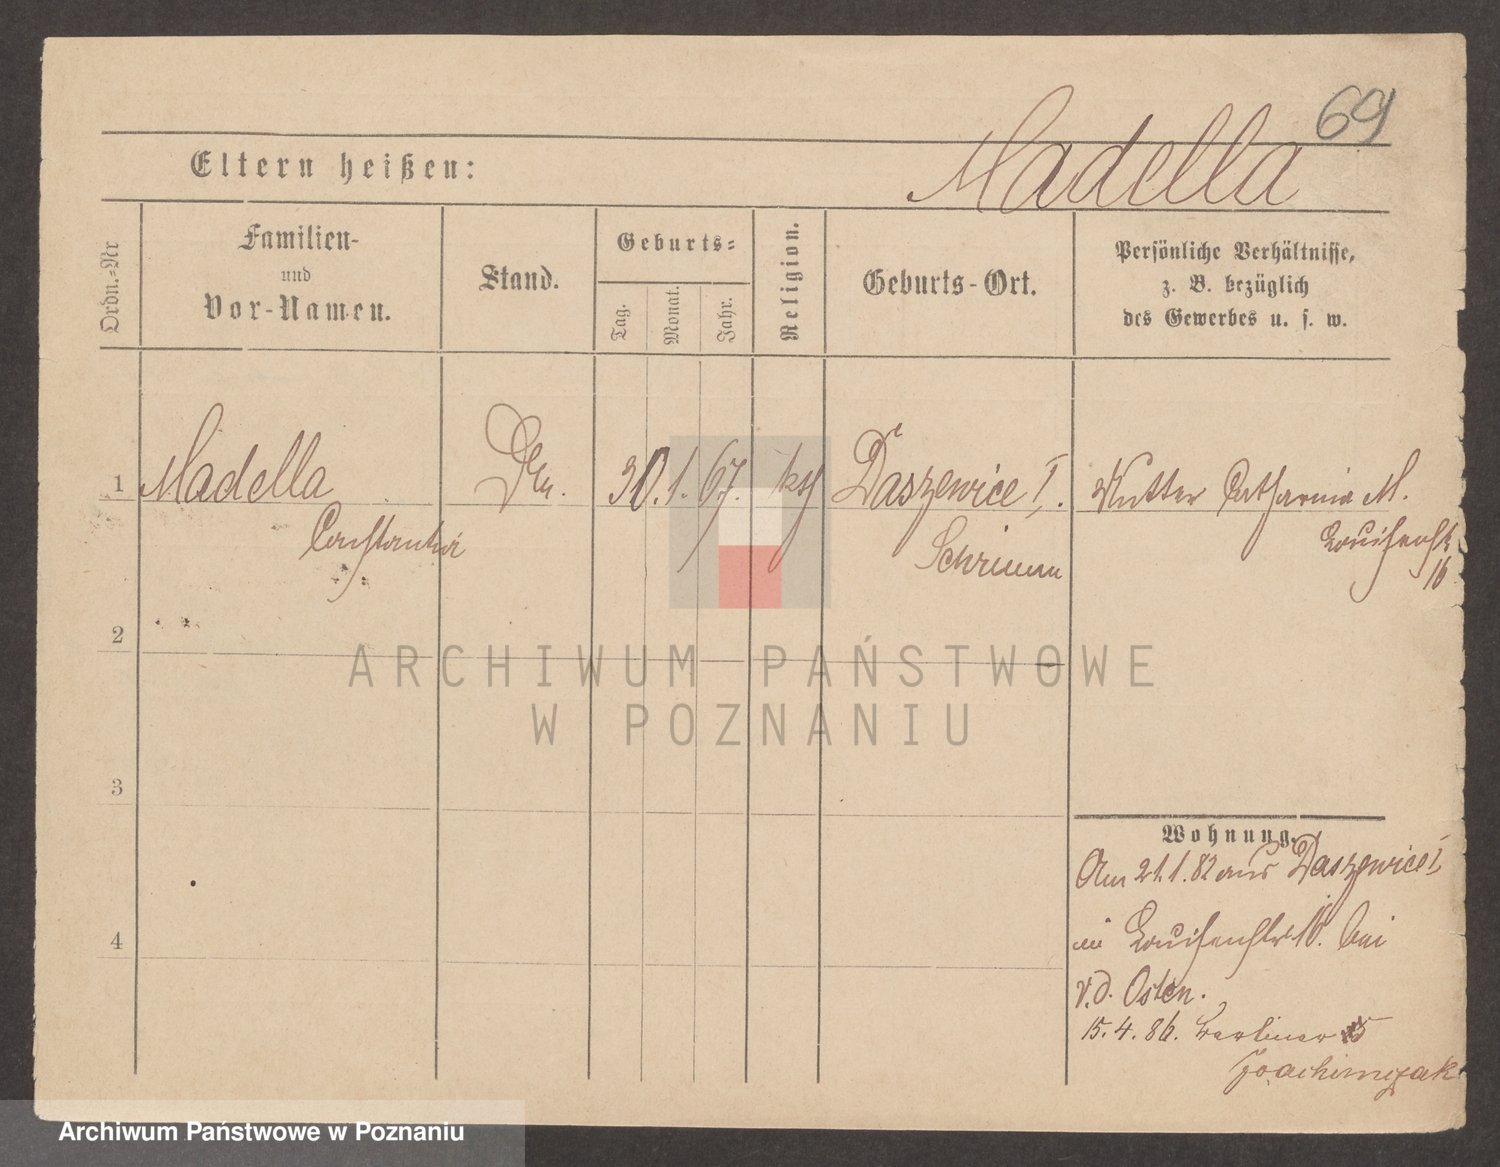 69
Eltern heißen: Madella
Ordn.-Nr
Familien-
und
Vor-Namen.
Stand.
Geburts-
Tag.
Monat.
Jahr.
Religion.
Geburts-Ort.
Persönliche Verhältnisse,
z. B. bezüglich
des Gewerbes u. s. w.
1 Madella 30. 1. 67. kth Daszewice I. Mutter Catharina M.
Constantia Schrimm Louisenstr
16
2
3
4
Wohnung.
Am 21.1.82 aus Daszewice I
in Louisenstr 16. bei
v. d. Osten.
15. 4. 86. Berliner
Joachimczak
ARCHIWUM PAŃSTWOWE
W POZNANIU
Archiwum Państwowe w Poznaniu